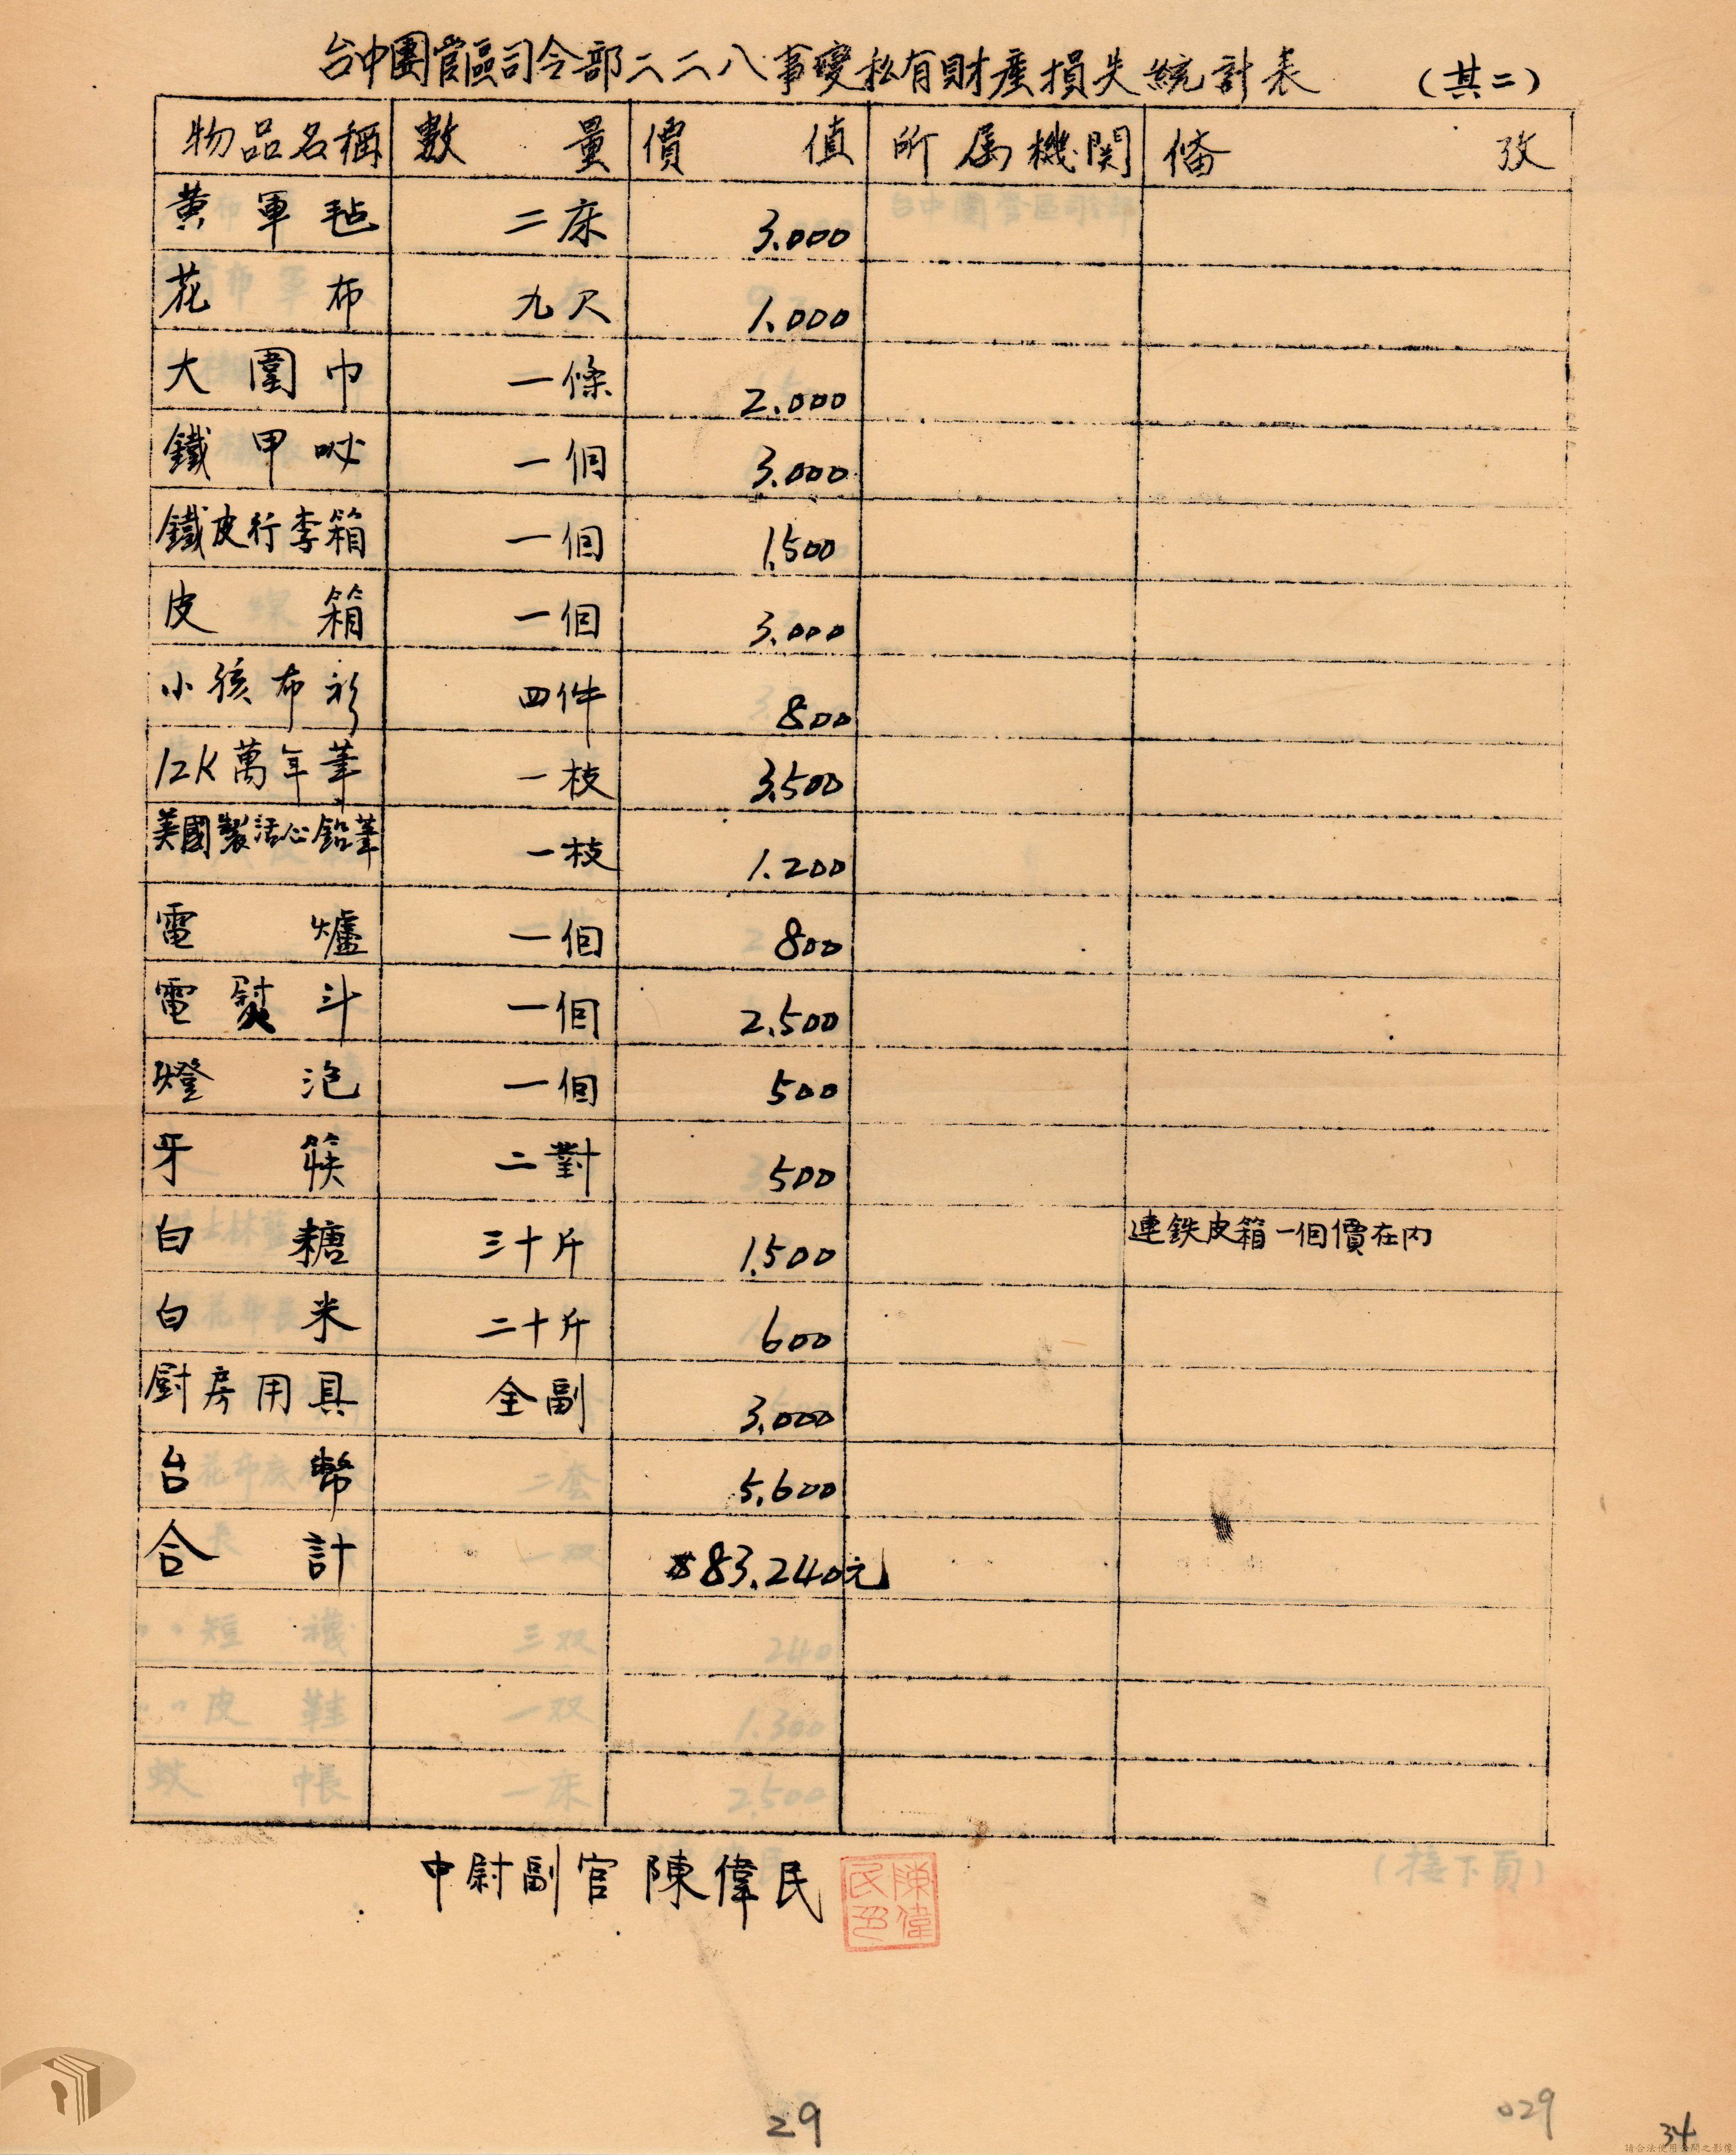 台中團管區司令部二二八事變私有財產損失統計表 (其二)
物品名稱 數量 價值 所属機関 俻攷
黃軍毡 二床 3.000
花布 九尺 1.000
大圍巾 一條 2.000
鐵甲咇 一個 3.000
鐵皮行李箱 一個 1,500
皮箱 一個 3.000
小孩布衫 四件 800
12K萬年筆 一枝 3,500
美國製活心鉛筆 一枝 1.200
電爐 一個 800
電熨斗 一個 2.500
燈泡 一個 500
牙筷 二對 500
白糖 三十斤 1,500 連鉄皮箱一個價在內
白米 二十斤 600
厨房用具 全副 3.000
台幣 5.600
合計 $83.240元
中尉副官 陳偉民
陳偉民印
29
029
34
請合法使用公開之影像